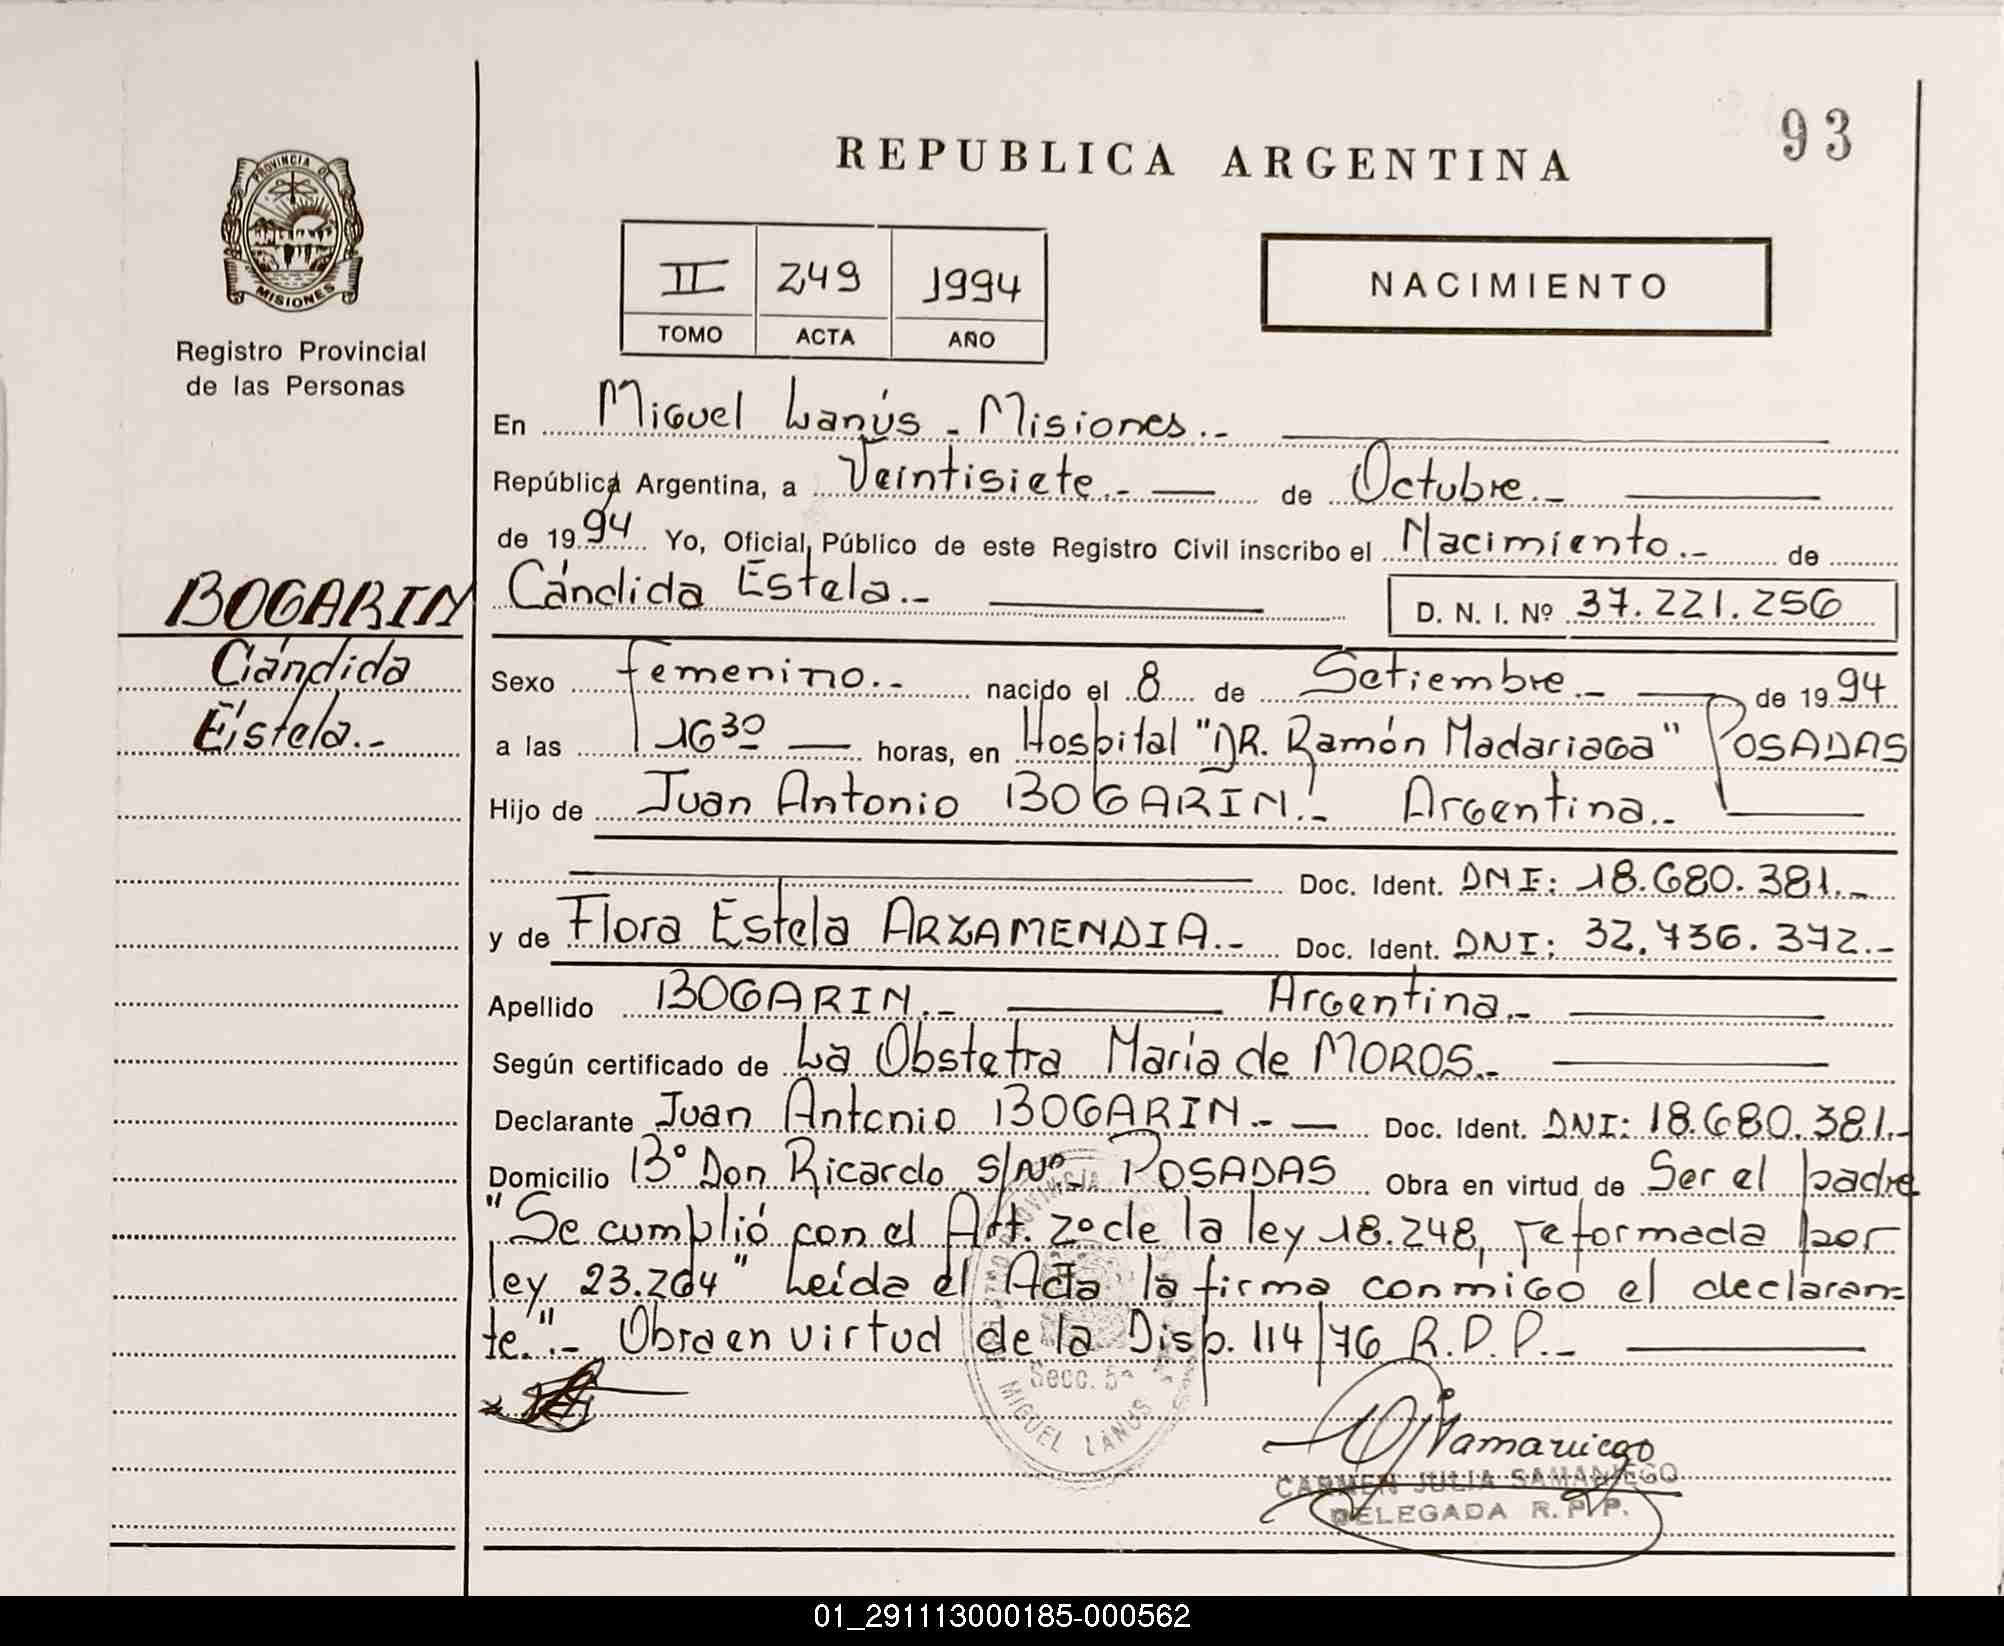 93
REPUBLICA ARGENTINA
PROVINCIA DE
MISIONES
Registro Provincial
de las Personas
II 249 1994
TOMO ACTA AÑO
NACIMIENTO
En Miguel Lanús - Misiones.-
República Argentina, a Veintisiete.- de Octubre.-
de 1994 Yo, Oficial Público de este Registro Civil inscribo el Nacimiento.- de
BOGARIN
Cándida
Estela.-
Cándida Estela.- D. N. I. Nº 37.221.256
Sexo femenino.- nacido el 8 de Setiembre.- de 1994
a las 16³⁰ horas, en Hospital "DR. Ramón Madariaga" POSADAS
Hijo de Juan Antonio BOGARIN.- Argentina.-
Doc. Ident. DNI: 18.680.381.-
y de Flora Estela ARZAMENDIA.- Doc. Ident. DNI: 32.736.372.-
Apellido BOGARIN.- Argentina.-
Según certificado de La Obstetra María de MOROS.-
Declarante Juan Antonio BOGARIN.- Doc. Ident. DNI: 18.680.381.-
Domicilio Bº Don Ricardo s/Nº POSADAS Obra en virtud de Ser el padre
"Se cumplió con el Art. 2º de la ley 18.248, reformada por
ley 23.264" Leída el Acta la firma conmigo el declaran=
te.".- Obra en virtud de la Disp. 114/76 R.P.P.-
Secc. 5ª
MIGUEL LANUS
Samaniego
CARMEN JULIA SAMANIEGO
DELEGADA R.P.P.
01_291113000185-000562